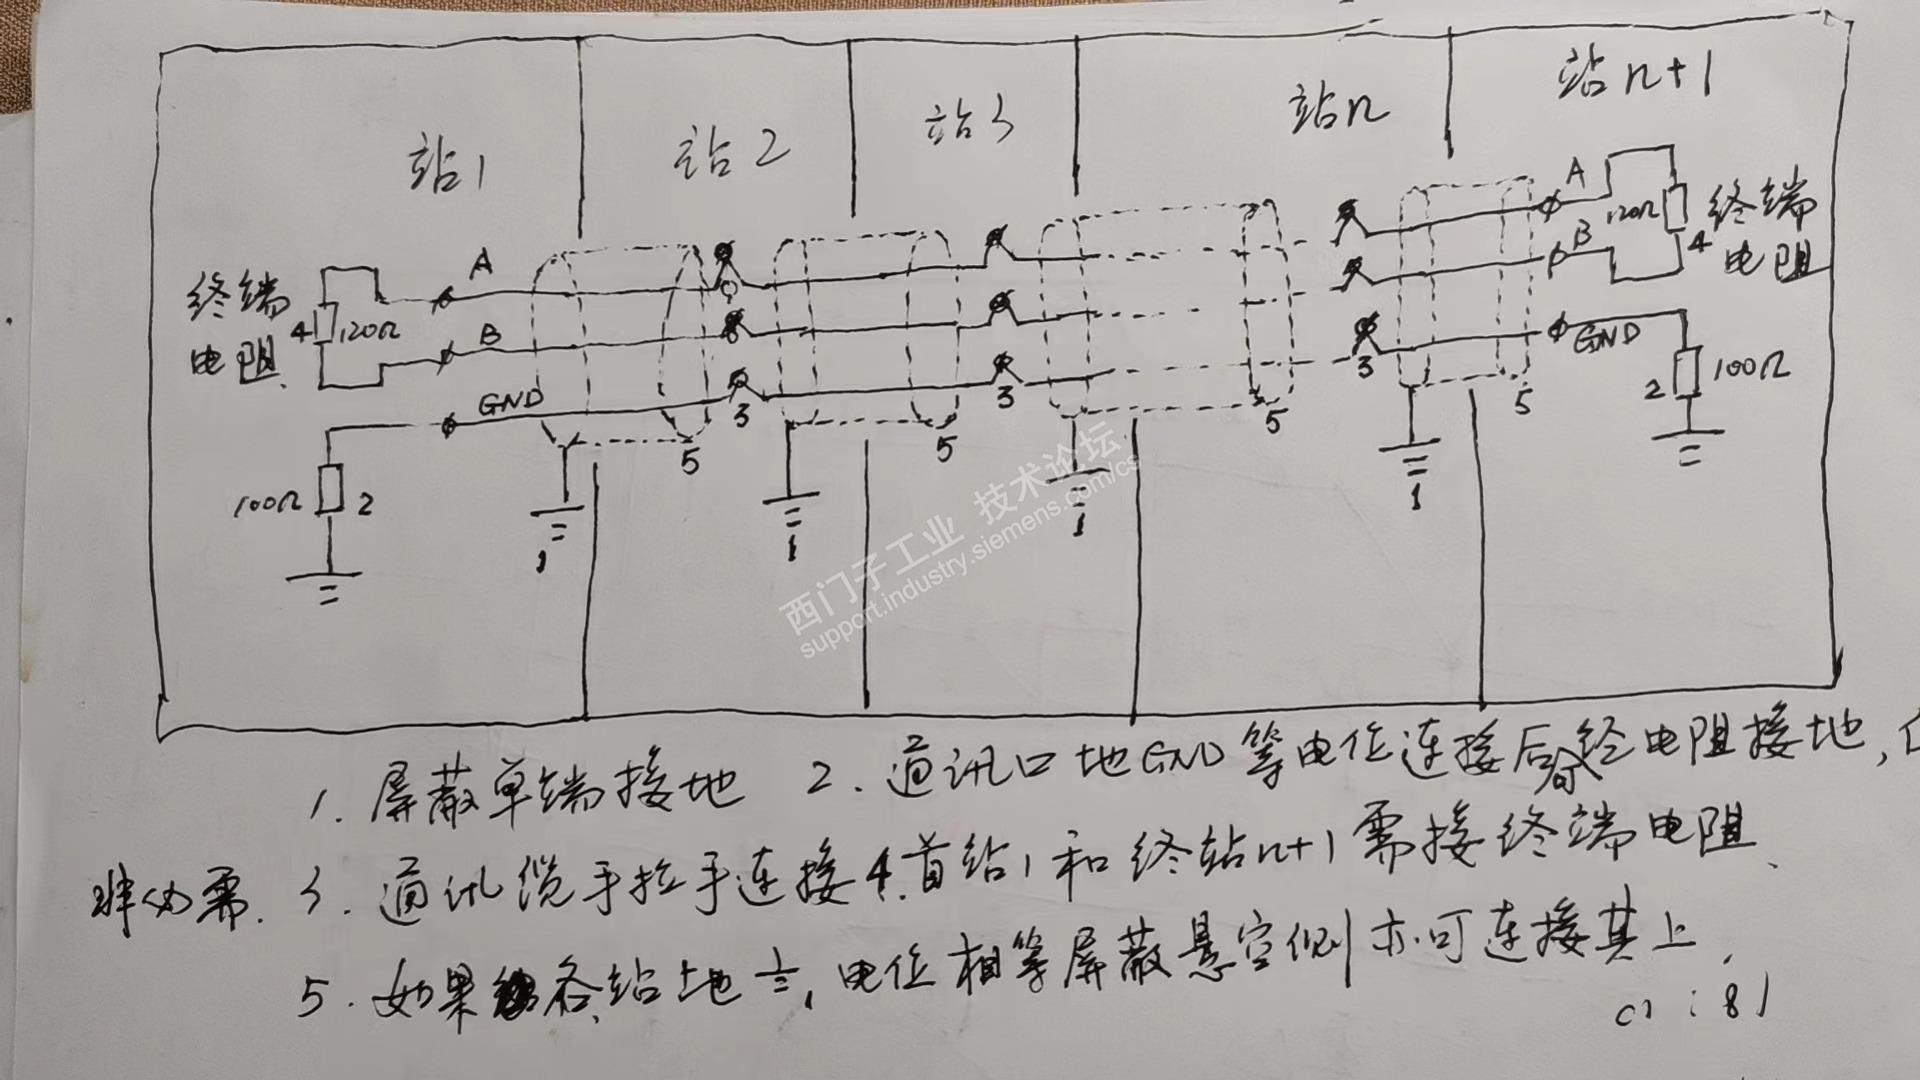 站1 站2 站3 站n 站n+1
A 120Ω 终端
B 4 电阻
终端 A
电阻 4 120Ω B
GND 3 3 3 GND
2 100Ω
5 5 5 5
100Ω 2
1 1 1 1
西门子工业 技术论坛
support.industry.siemens.com/cs
1. 屏蔽单端接地 2. 通讯口地GND等电位连接后经电阻接地,
非必需. 3. 通讯缆手拉手连接 4. 首站1和终站n+1需接终端电阻.
5. 如果各站地, 电位相等屏蔽悬空侧亦可连接其上.